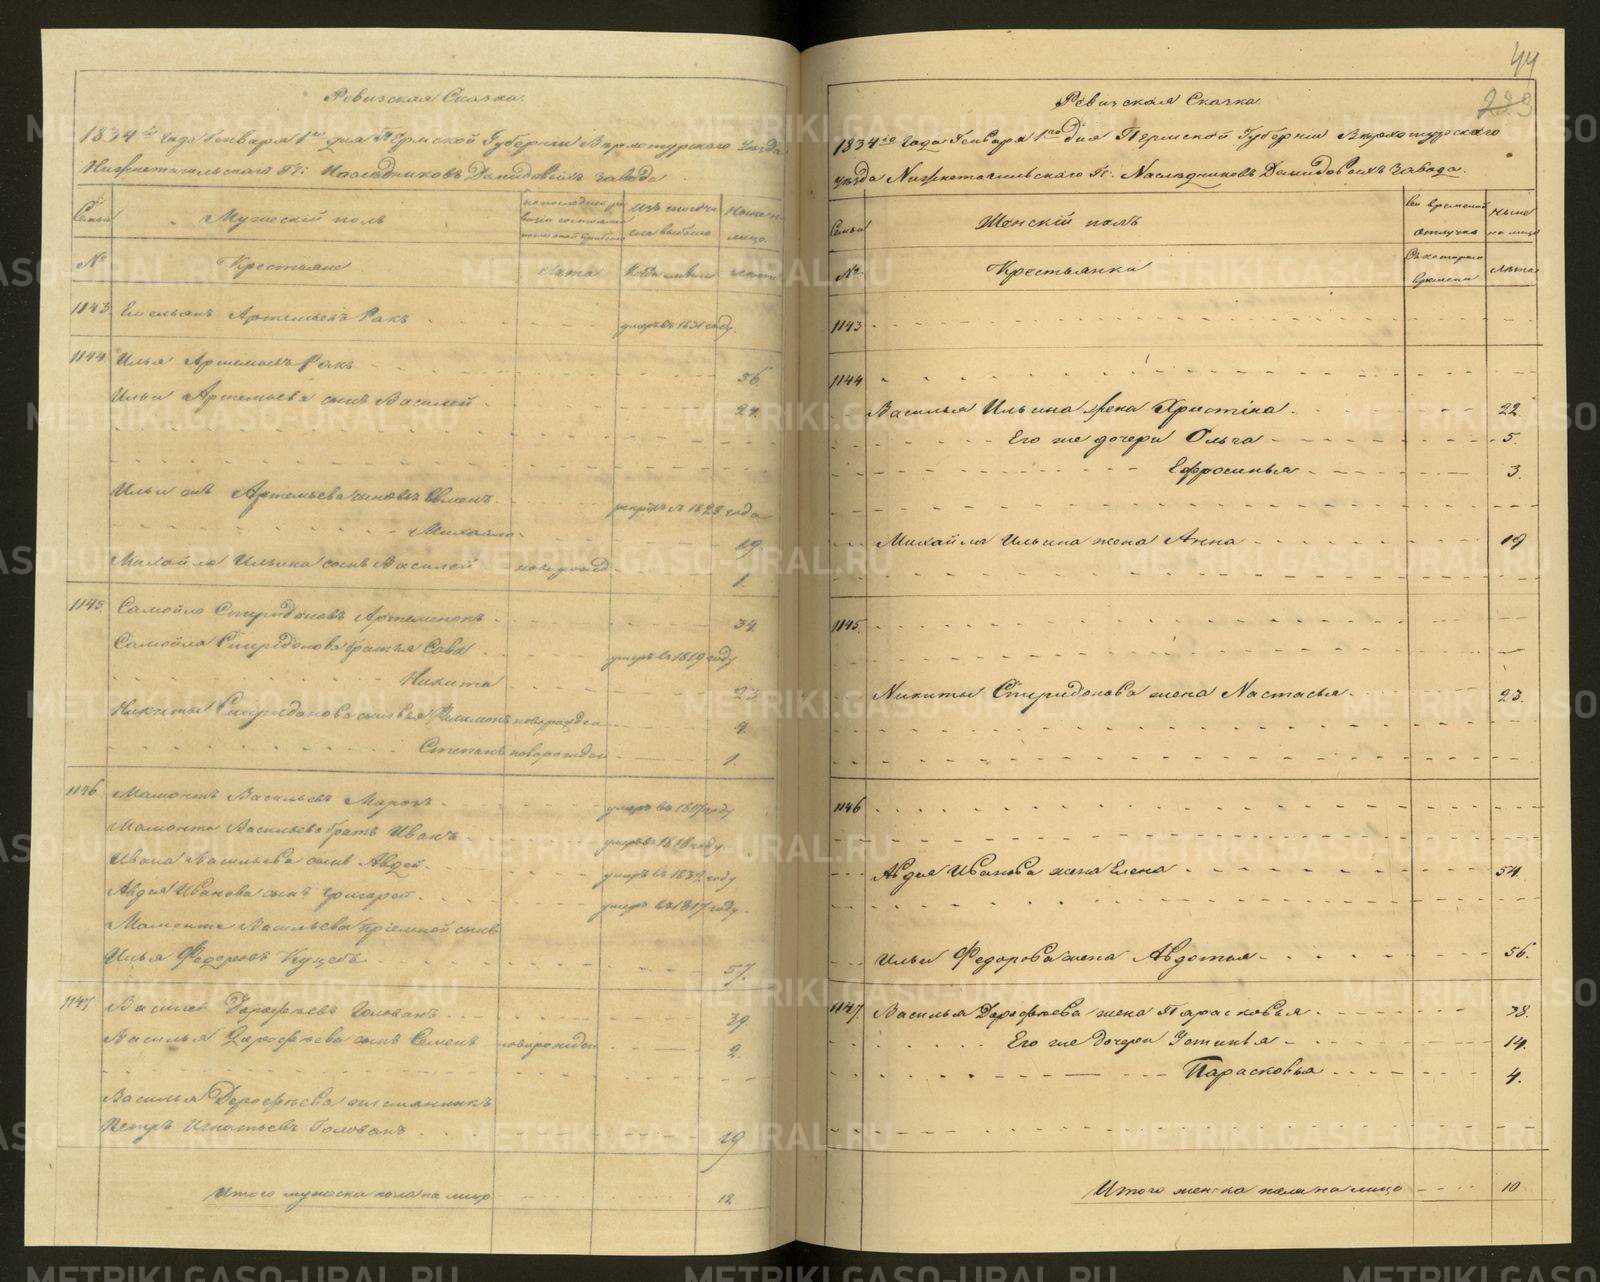 Ревизская Сказка.
1834го года Генваря 1го дня Пермской Губернии Верхотурского уезда
Нижнетагильского Гг: Наследниковъ Демидовыхъ завода
Семьи
Мужескій полъ
№
Крестьяне
лета
лета
1143
Емельянъ Артемьевъ Ракъ
умеръ въ 1831 году.
1144
Илья Артемьевъ Ракъ
56
Ильи Артемьева сынъ Василей
24.
Ильи Артемьева сыновья Семенъ
рекрутъ въ 1828 года
Михайло
19.
Михайла Ильина сынъ Василей новорожд
1.
1145.
Самойло Спиридоновъ Артеменокъ
34
Самойла Спиридонова братья Сава
умеръ въ 1819 году
Никита
23
Никиты Спиридонова сыновья Филимонъ новорожден
4.
Степанъ новорожден
1.
1146
Мамонтъ Васильевъ
умеръ въ 1817 году
Мамонта Васильева братъ Иванъ
умеръ въ 1818 году
Ивана Васильева сынъ Авдей
умеръ въ 1832 году
Авдея Иванова сынъ Григорей
умеръ въ 1817 году.
Мамонта Васильева пріемной сынъ
Илья Федоровъ Куцебъ
57.
1147
Василей Дорофеевъ Голованъ
39
Василья Дорофеева сынъ Семенъ новорожден
2.
Василья Дорофеева племянникъ
Петръ Игнатьевъ Голованъ
19
Итого мужеска пола на лицо
12
44
223
Ревизская Сказка.
1834го года Генваря 1го дня Пермской Губернии Верхотурского
уезда Нижнетагильского Гг: Наследниковъ Демидовыхъ завода.
Семьи
Женскій полъ
Во временой отлучке
Ныне на лицо
№
Крестьянки
Съ котораго времени
лета
1143
1144
Василья Ильина жена Христина
22.
Его же дочери Ольга
5.
Ефросинья
3.
Михайла Ильина жена Анна
19
1145.
Никиты Спиридонова жена Настасья
23.
1146
Авдея Иванова жена Елена
54.
Ильи Федорова жена Авдотья
56.
1147
Василья Дорофеева жена Парасковья
38.
Его же дочери Устинья
14.
Парасковья
4.
Итого женска пола на лицо
10
METRIKI.GASO-URAL.RU